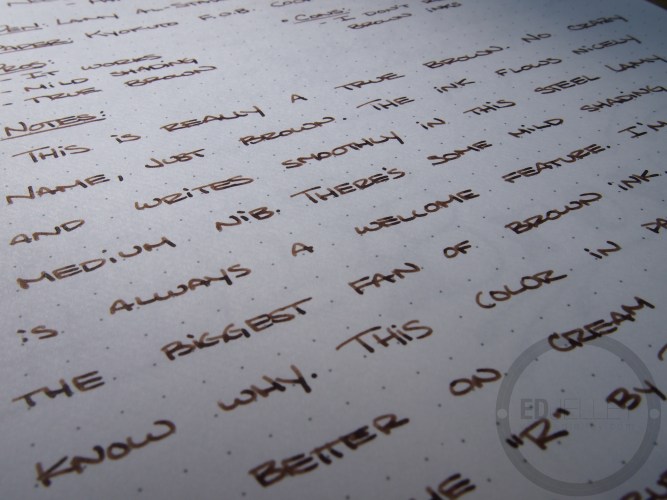 PEN: LAMY AL-STAR
PAPER: KYOKUTO F.O.B. COOP
PROS:
- IT WORKS
- MILD SHADING
- TRUE BROWN
• CONS:
- I DON'T
BROWN INKS
NOTES:
THIS IS REALLY A TRUE BROWN. NO CRAZY
NAME, JUST BROWN. THE INK FLOWS NICELY
AND WRITES SMOOTHLY IN THIS STEEL LAMY
MEDIUM NIB. THERE'S SOME MILD SHADING
IS ALWAYS A WELCOME FEATURE. I'M
THE BIGGEST FAN OF BROWN INK.
KNOW WHY. THIS COLOR IN PA
BETTER ON CREAM
THE "R" BY
ED JELLEY